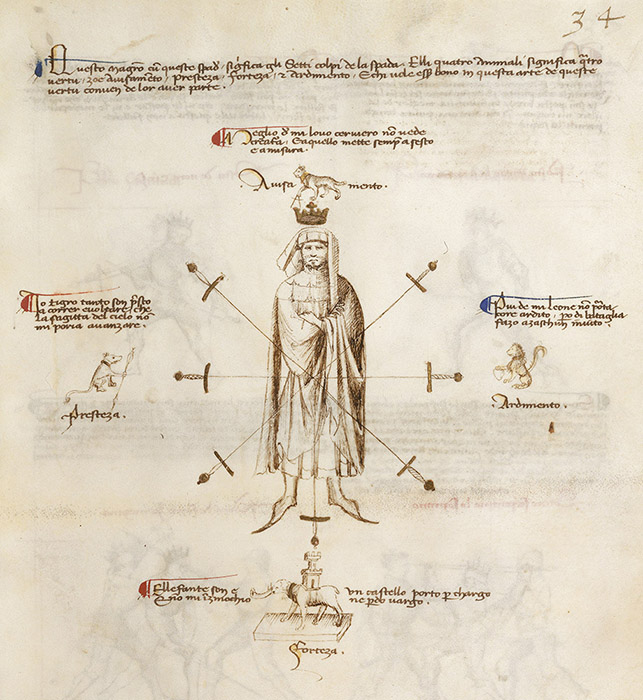 34
Questo magro cū queste spad' significa gli Setti colpi de la spada. Elli quatro animali significa q̄tro
vertu, zoe auisamēto, presteza, forteza, & ardimento, E chi uole ess̄ bono in questa arte de queste
vertu conuen de lor auer parte.
Meglio d' mi louo ceruiero nō uede
creat̄a. Eaquello mette semp̄ a sesto
e a misura.
Auisa mento.
Io tigro tanto son p̄sto
a correr e uoltare, che
la sagitta del cielo nō
mi poria auanzare.
Presteza.
Piu de mi leone nō p̄ta
core ardito, p̄o di bataglia
fazo a zaschun inuito.
Ardimento.
Ellefante son e un castello porto p̄ chargo
E nō mi īzinochio ne p̄do uargo.
Forteza.